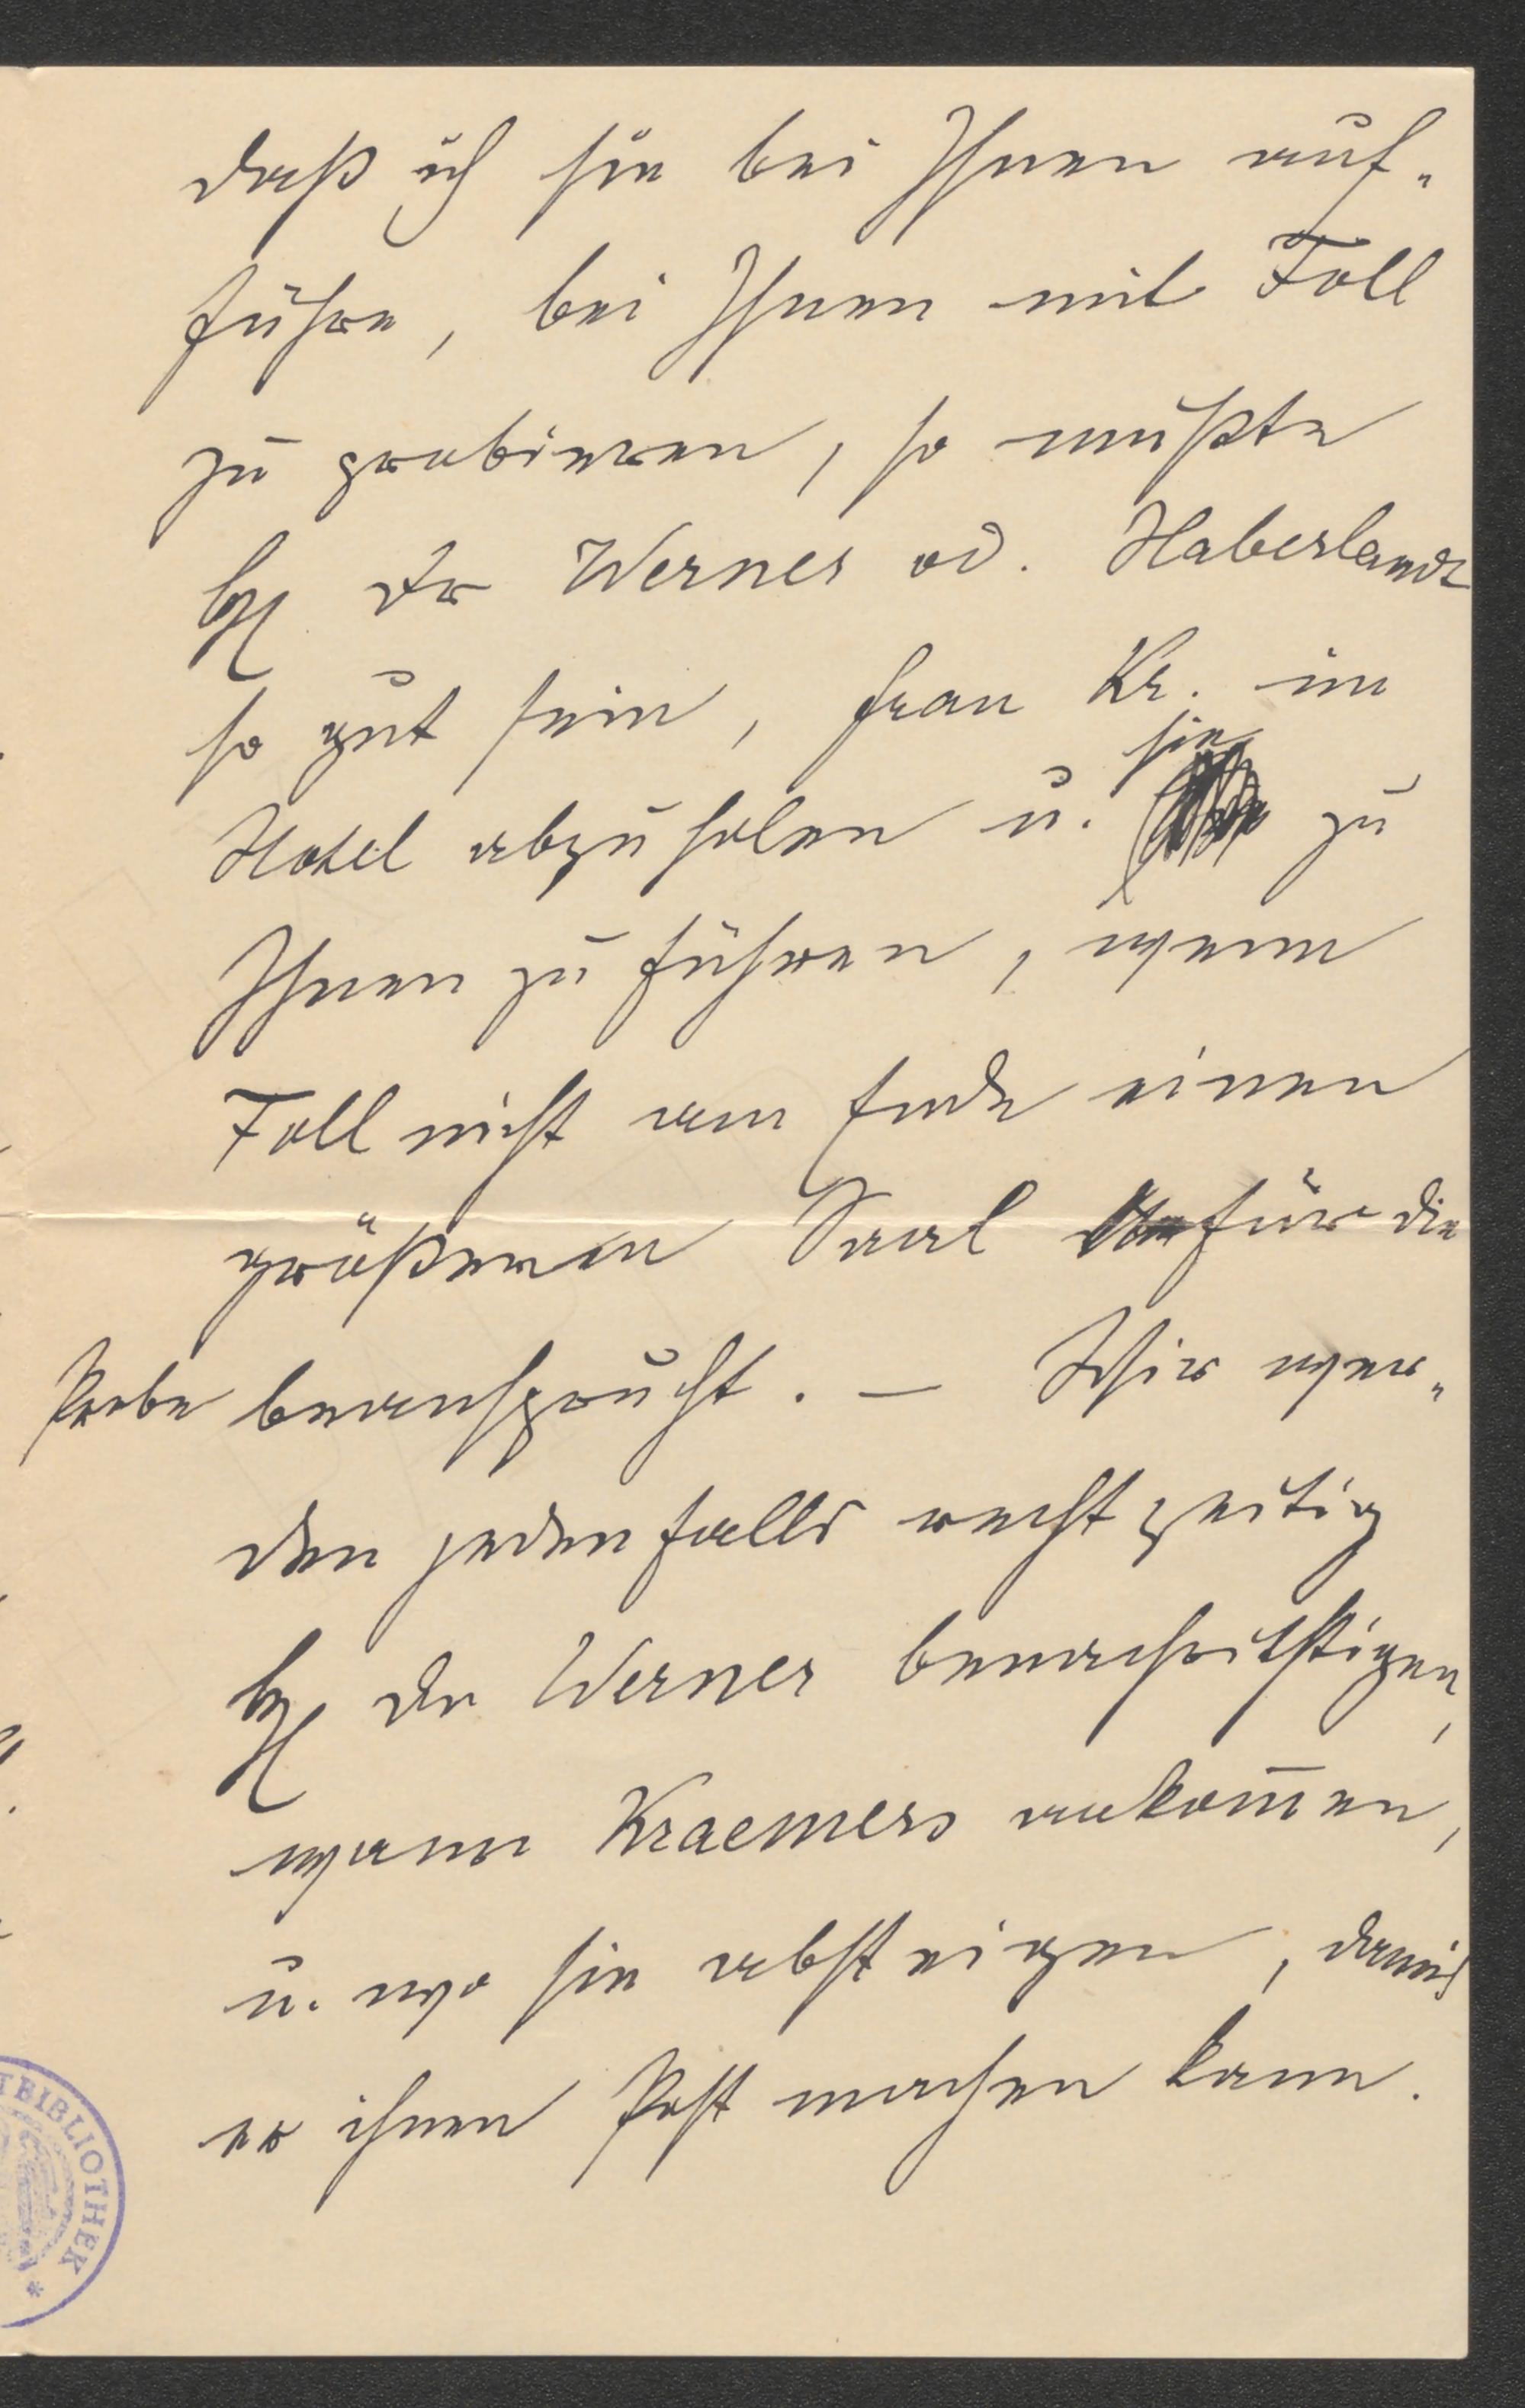 daß ich sie bei Ihnen auf„
führe, bei Ihnen mit Foll
zu probieren, so müßte
H Dr Werner od. Haberlandt
so gut sein, Frau Kr. im
Hotel abzuholen u. sie zu
Ihnen zu führen, wenn
Foll nicht am Ende einen
größeren Saal für die
Probe beansprucht. — Wir wer„
den jedenfalls rechtzeitig
H Dr Werner benachrichtigen,
wann Kraemers ankom̅en,
u. wo sie absteigen, damit
er ihnen Post machen kann.
TBIBLIOTHEK *